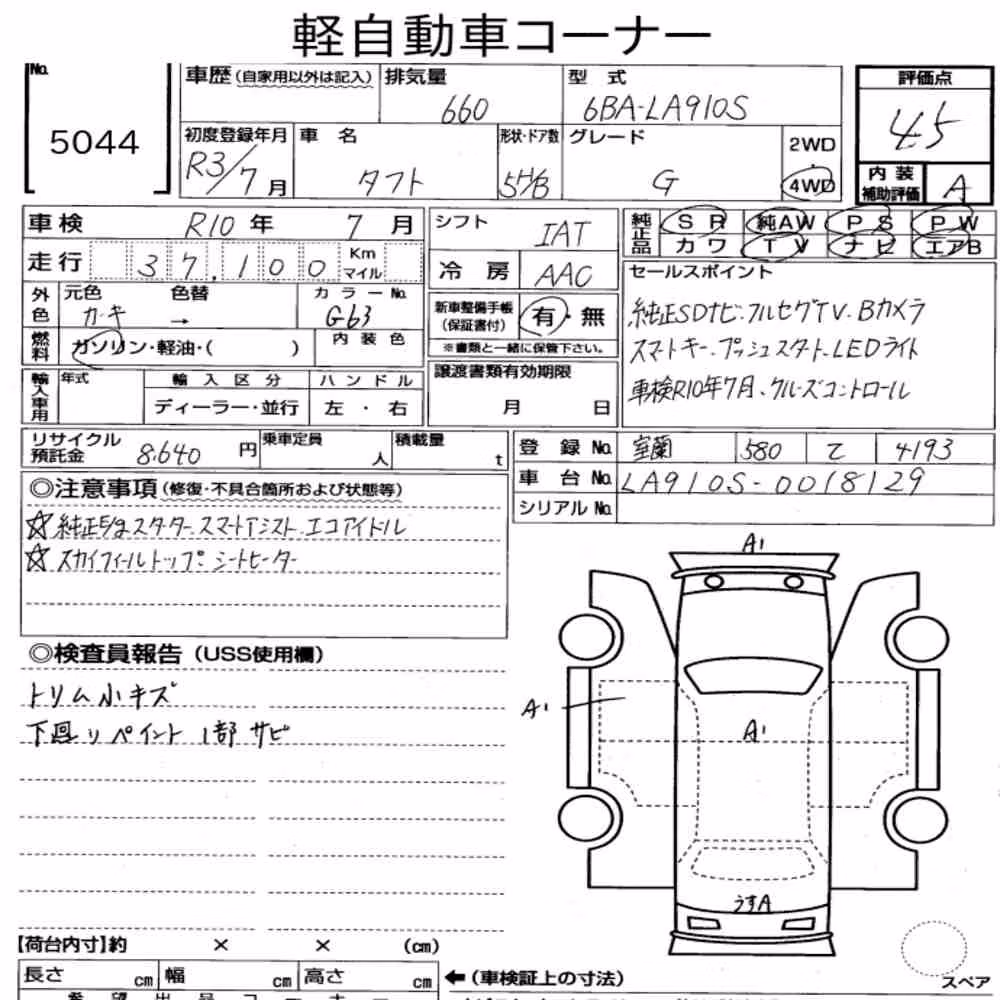 軽自動車コーナー
No. 5044
車歴(自家用以外は記入) 排気量 660 型式 6BA-LA910S 評価点 4.5
初度登録年月 R3/7月 車名 タフト 形状・ドア数 5H/B グレード G 2WD・4WD 内装補助評価 A
車検 R10年 7月 シフト IAT 純正品 SR 純AW PS PW
カワ TV ナビ エアB
走行 37,100 Km マイル 冷房 AAC
外色 元色 カーキ 色替 → カラーNo. G63
燃料 ガソリン・軽油・( ) 内装色
新車整備手帳(保証書付) 有・無
※書類と一緒に保管下さい。
セールスポイント
純正SDナビ.フルセグTV.Bカメラ
スマートキー.プッシュスタート.LEDライト
車検R10年7月.クルーズコントロール
輸入車用 年式 輸入区分 ハンドル
ディーラー・並行 左・右
譲渡書類有効期限
月 日
リサイクル預託金 8.640円 乗車定員 人 積載量 t
登録No. 室蘭 580 て 4193
車台No. LA910S-0018129
シリアルNo.
◎注意事項(修復・不具合箇所および状態等)
☆純正E/gスターター.スマートアシスト.エコアイドル
☆スカイフィールトップ.シートヒーター
◎検査員報告(USS使用欄)
トリム小キズ
下廻りペイント1部サビ
A1
A1
A1
うすA
スペア
【荷台内寸】約 × × (cm)
長さ cm 幅 cm 高さ cm ←(車検証上の寸法)